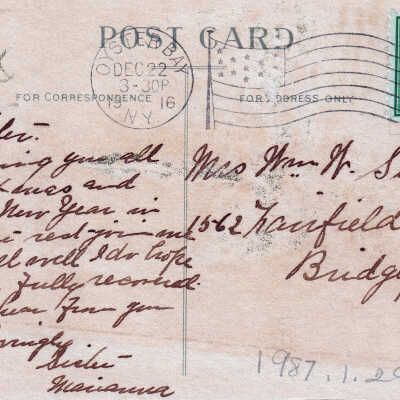 POST CARD
OYSTER BAY
DEC 22
3-30P
16
N.Y.
FOR CORRESPONDENCE
FOR ADDRESS ONLY
you all
and
New Year in
rest you
well I do hope
fully recovered.
hear from you
Sister
Marianna
Mrs Wm W. S
1562 Fairfield
Bridge
1987.1.29